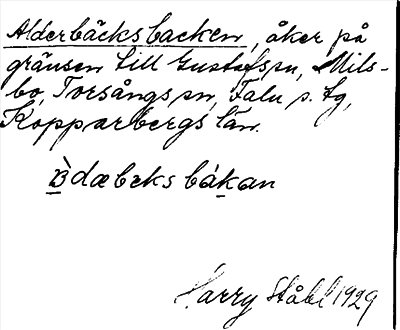 Alderbäcksbacken, åker på
gränsen till Gustafs sn, Mils-
bo, Torsångs sn, Falu s. tg,
Kopparbergs län.
àdæbcks bákan
Harry Ståhl 1929